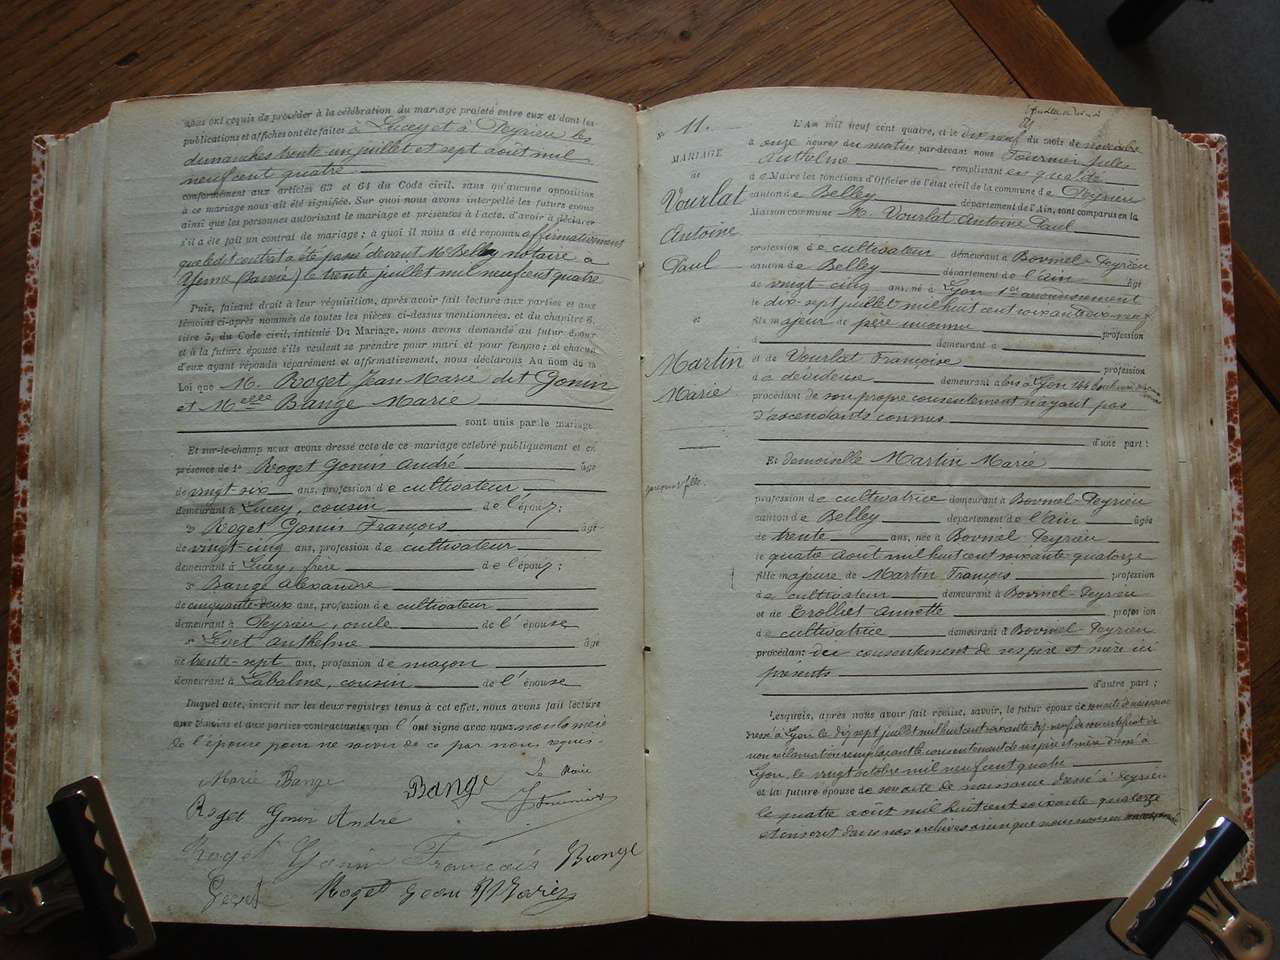 nous ont requis de procéder à la célébration du mariage projeté entre eux et dont les
publications et affiches ont été faites à Lucey et à Peyrieu les
dimanches trente-un juillet et sept août mil
neuf cent quatre
conformément aux articles 63 et 64 du Code civil, sans qu'aucune opposition
à ce mariage nous ait été signifiée. Sur quoi nous avons interpellé les futurs époux
ainsi que les personnes autorisant le mariage et présentes à l'acte, d'avoir à déclarer
s'il a été fait un contrat de mariage; à quoi il nous a été répondu affirmativement
que ledit contrat a été passé devant Me Belley notaire à
Yenne (Savoie) le trente juillet mil neuf cent quatre
Puis, faisant droit à leur réquisition, après avoir fait lecture aux parties et aux
témoins ci-après nommés de toutes les pièces ci-dessus mentionnées, et du chapitre 6,
titre 5, du Code civil, intitulé Du Mariage, nous avons demandé au futur époux
et à la future épouse s'ils veulent se prendre pour mari et pour femme; et chacun
d'eux ayant répondu séparément et affirmativement, nous déclarons Au nom de la
Loi que M. Roget Jean Marie dit Gonin
et Melle Bange Marie
sont unis par le mariage
Et sur-le-champ nous avons dressé acte de ce mariage célébré publiquement et en
présence de 1° Roget Gonin André âgé
de vingt-six ans, profession de cultivateur
demeurant à Lucey, cousin de l'époux;
2° Roget Gonin François âgé
de vingt-cinq ans, profession de cultivateur
demeurant à Lucey, frère de l'époux;
3° Bange Alexandre
de cinquante-deux ans, profession de cultivateur
demeurant à Peyrieu, oncle de l'épouse
Anthelme âgé
de trente-sept ans, profession de maçon
demeurant à Labalme, cousin de l'épouse
Duquel acte, inscrit sur les deux registres tenus à cet effet, nous avons fait lecture
aux témoins et aux parties contractantes qui l'ont signé avec nous non la mère
de l'épouse pour ne savoir de ce par nous requis.
Marie Bange Bange Le Maire
Roget Gonin André J Fournier
Roget Gonin François Bange
Roget Jean Marie
N° 11.
MARIAGE
de
Vourlat
Antoine
Paul
et
Martin
Marie
L'An mil neuf cent quatre, et le dix neuf du mois de novembre
à onze heures du matin par-devant nous Fournier Jules
Anthelme remplissant en qualité
de Maire les fonctions d'Officier de l'état civil de la commune de Peyrieu
canton de Belley département de l'Ain, sont comparus en la
Maison commune M. Vourlat Antoine Paul
profession de cultivateur demeurant à Bovinel-Peyrieu
canton de Belley département de l'Ain âgé
de vingt-cinq ans, né à Lyon 1er arrondissement
le dix-sept juillet mil huit cent soixante dix-neuf
fils majeur de père inconnu profession
d demeurant à
et de Vourlat Françoise profession
de dévideuse demeurant alors à Lyon 144
procédant de son propre consentement n'ayant pas
d'ascendants connus
d'une part;
Et demoiselle Martin Marie
profession de cultivatrice demeurant à Bovinel-Peyrieu
canton de Belley département de l'Ain âgée
de trente ans, née à Bovinel-Peyrieu
le quatre août mil huit cent soixante-quatorze
fille majeure de Martin François profession
de cultivateur demeurant à Bovinel-Peyrieu
et de Trolliet Annette profession
de cultivatrice demeurant à Bovinel-Peyrieu
procédant du consentement de ses père et mère ici
présents
d'autre part;
Lesquels, après nous avoir fait remise, savoir, le futur époux de son acte de naissance
dressé à Lyon le dix sept juillet mil huit cent soixante dix-neuf du certificat de
non réclamation remplaçant le consentement de ses père et mère dressé à
Lyon, le vingt octobre mil neuf cent quatre
et la future épouse de son acte de naissance dressé à Peyrieu
le quatre août mil huit cent soixante quatorze
et inscrit dans nos archives ainsi que nous nous en